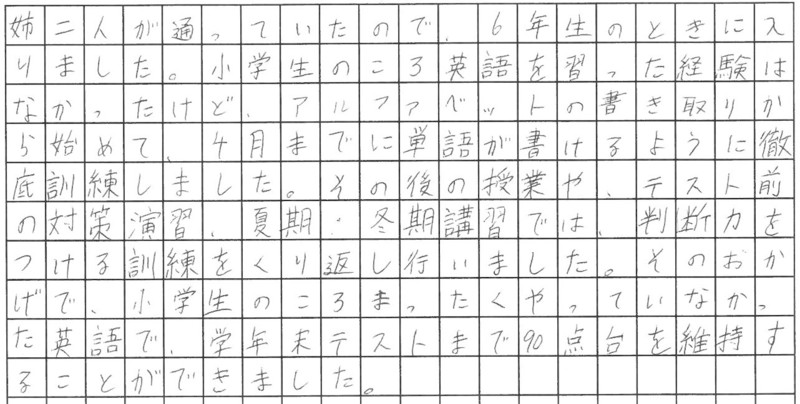 姉二人が通っていたので、6年生のときに入
りました。小学生のころ英語を習った経験は
なかったけど、アルファベットの書き取りか
ら始めて、4月までに単語が書けるように徹
底訓練しました。その後の授業や、テスト前
の対策演習、夏期・冬期講習では、判断力を
つける訓練をくり返し行いました。そのおか
げで、小学生のころまったくやっていなかっ
た英語で、学年末テストまで90点台を維持す
ることができました。